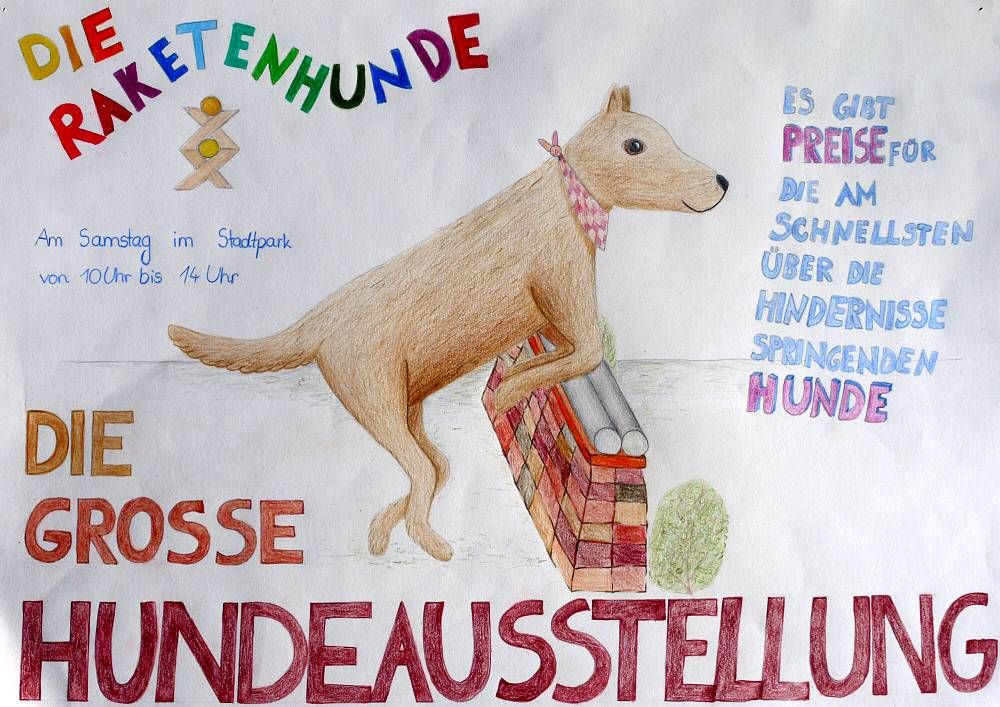 DIE
RAKETENHUNDE
Am Samstag im Stadtpark
von 10 Uhr bis 14 Uhr
ES GIBT
PREISE FÜR
DIE AM
SCHNELLSTEN
ÜBER DIE
HINDERNISSE
SPRINGENDEN
HUNDE
DIE
GROSSE
HUNDEAUSSTELLUNG